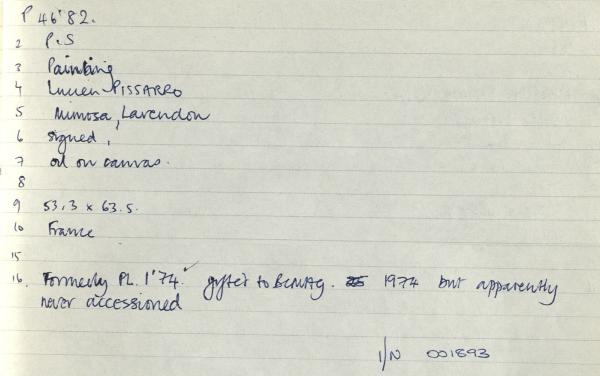 P 46'82.
2 P.S
3 Painting
4 Lucien PISSARRO
5 Mimosa, Lavendon
6 signed,
7 oil on canvas.
8
9 53.3 x 63.5.
10 France
15
16. Formerly PL. 1'74. gifted to BCMAG. 1974 but apparently
never accessioned
I/N 001893